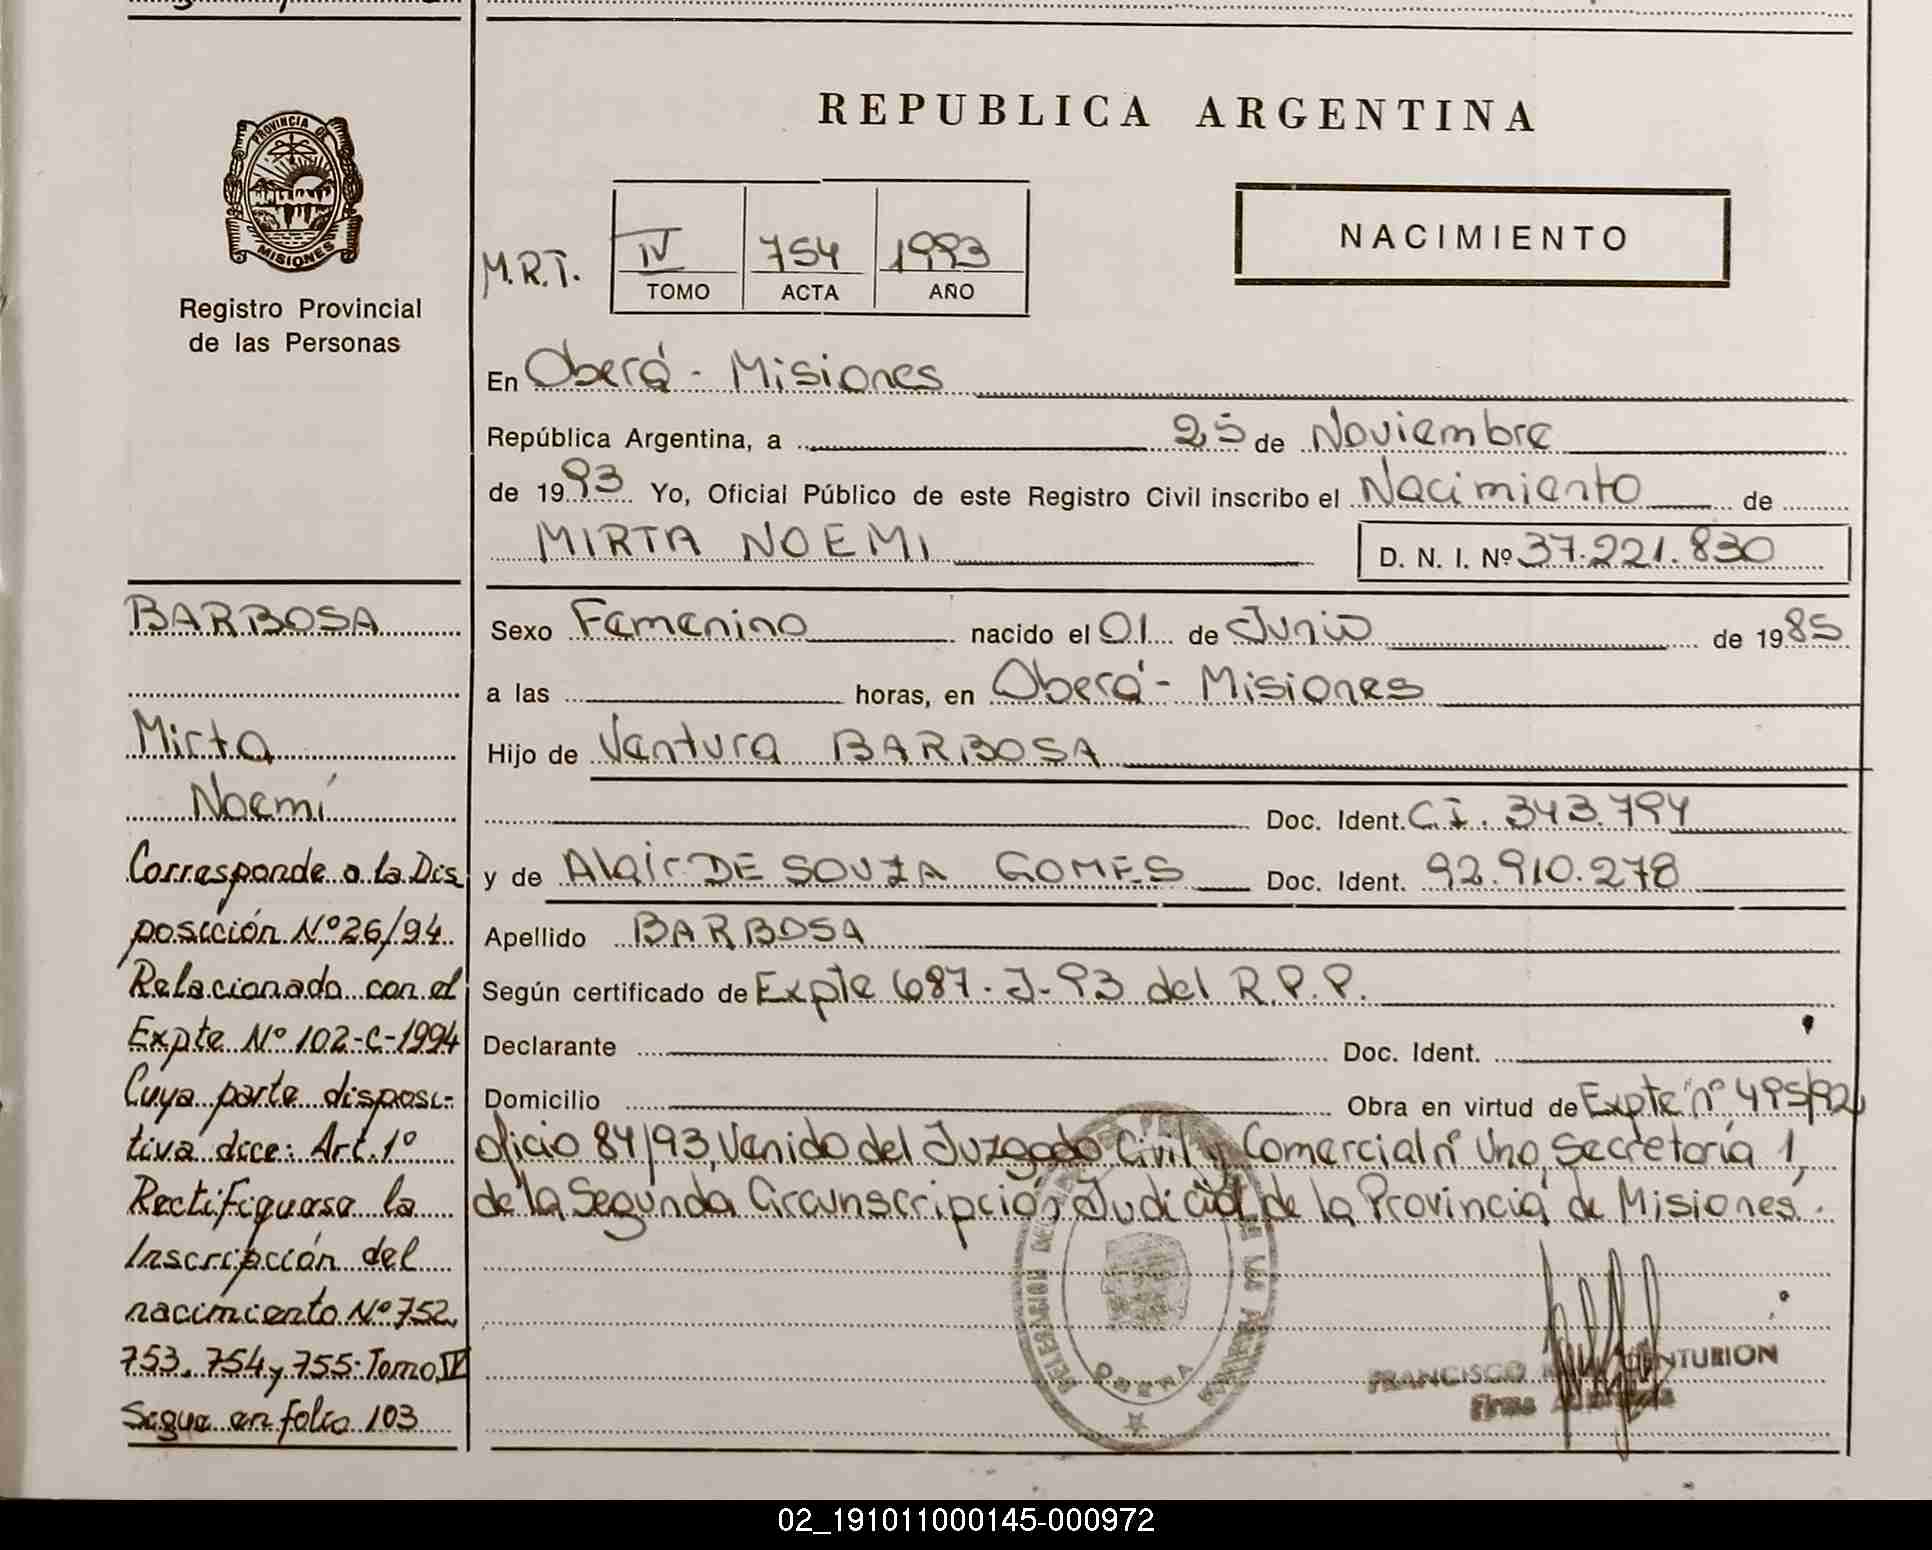 REPUBLICA ARGENTINA
PROVINCIA DE
MISIONES
Registro Provincial
de las Personas
M.R.T.
IV 754 1993
TOMO ACTA AÑO
NACIMIENTO
En Oberá - Misiones
República Argentina, a 25 de Noviembre
de 1993 Yo, Oficial Público de este Registro Civil inscribo el Nacimiento de
MIRTA NOEMI D. N. I. Nº 37.221.830
Sexo Femenino nacido el 01 de Junio de 1985
a las horas, en Oberá - Misiones
Hijo de Ventura BARBOSA
Doc. Ident. C.I. 343.794
y de Alair DE SOUZA GOMES Doc. Ident. 92.910.278
Apellido BARBOSA
Según certificado de Expte 687-J-93 del R.P.P.
Declarante Doc. Ident.
Domicilio Obra en virtud de Expte nº 495/92,
oficio 84/93, Venido del Juzgado Civil y Comercial nº Uno, Secretoría 1,
de la Segunda Circunscripción Judicial de la Provincia de Misiones.
BARBOSA
Mirta
Noemí
Corresponde a la Dis
posición Nº 26/94.
Relacionado con el
Expte Nº 102-C-1994
Cuya parte disposi-
tiva dice: Art. 1º
Rectifíquase la
Inscripción del
nacimiento Nº 752,
753, 754 y 755-Tomo IV
Segue en folio 103
DELEGACION DE LAS
OBERA
FRANCISCO CENTURION
Firma
02_191011000145-000972